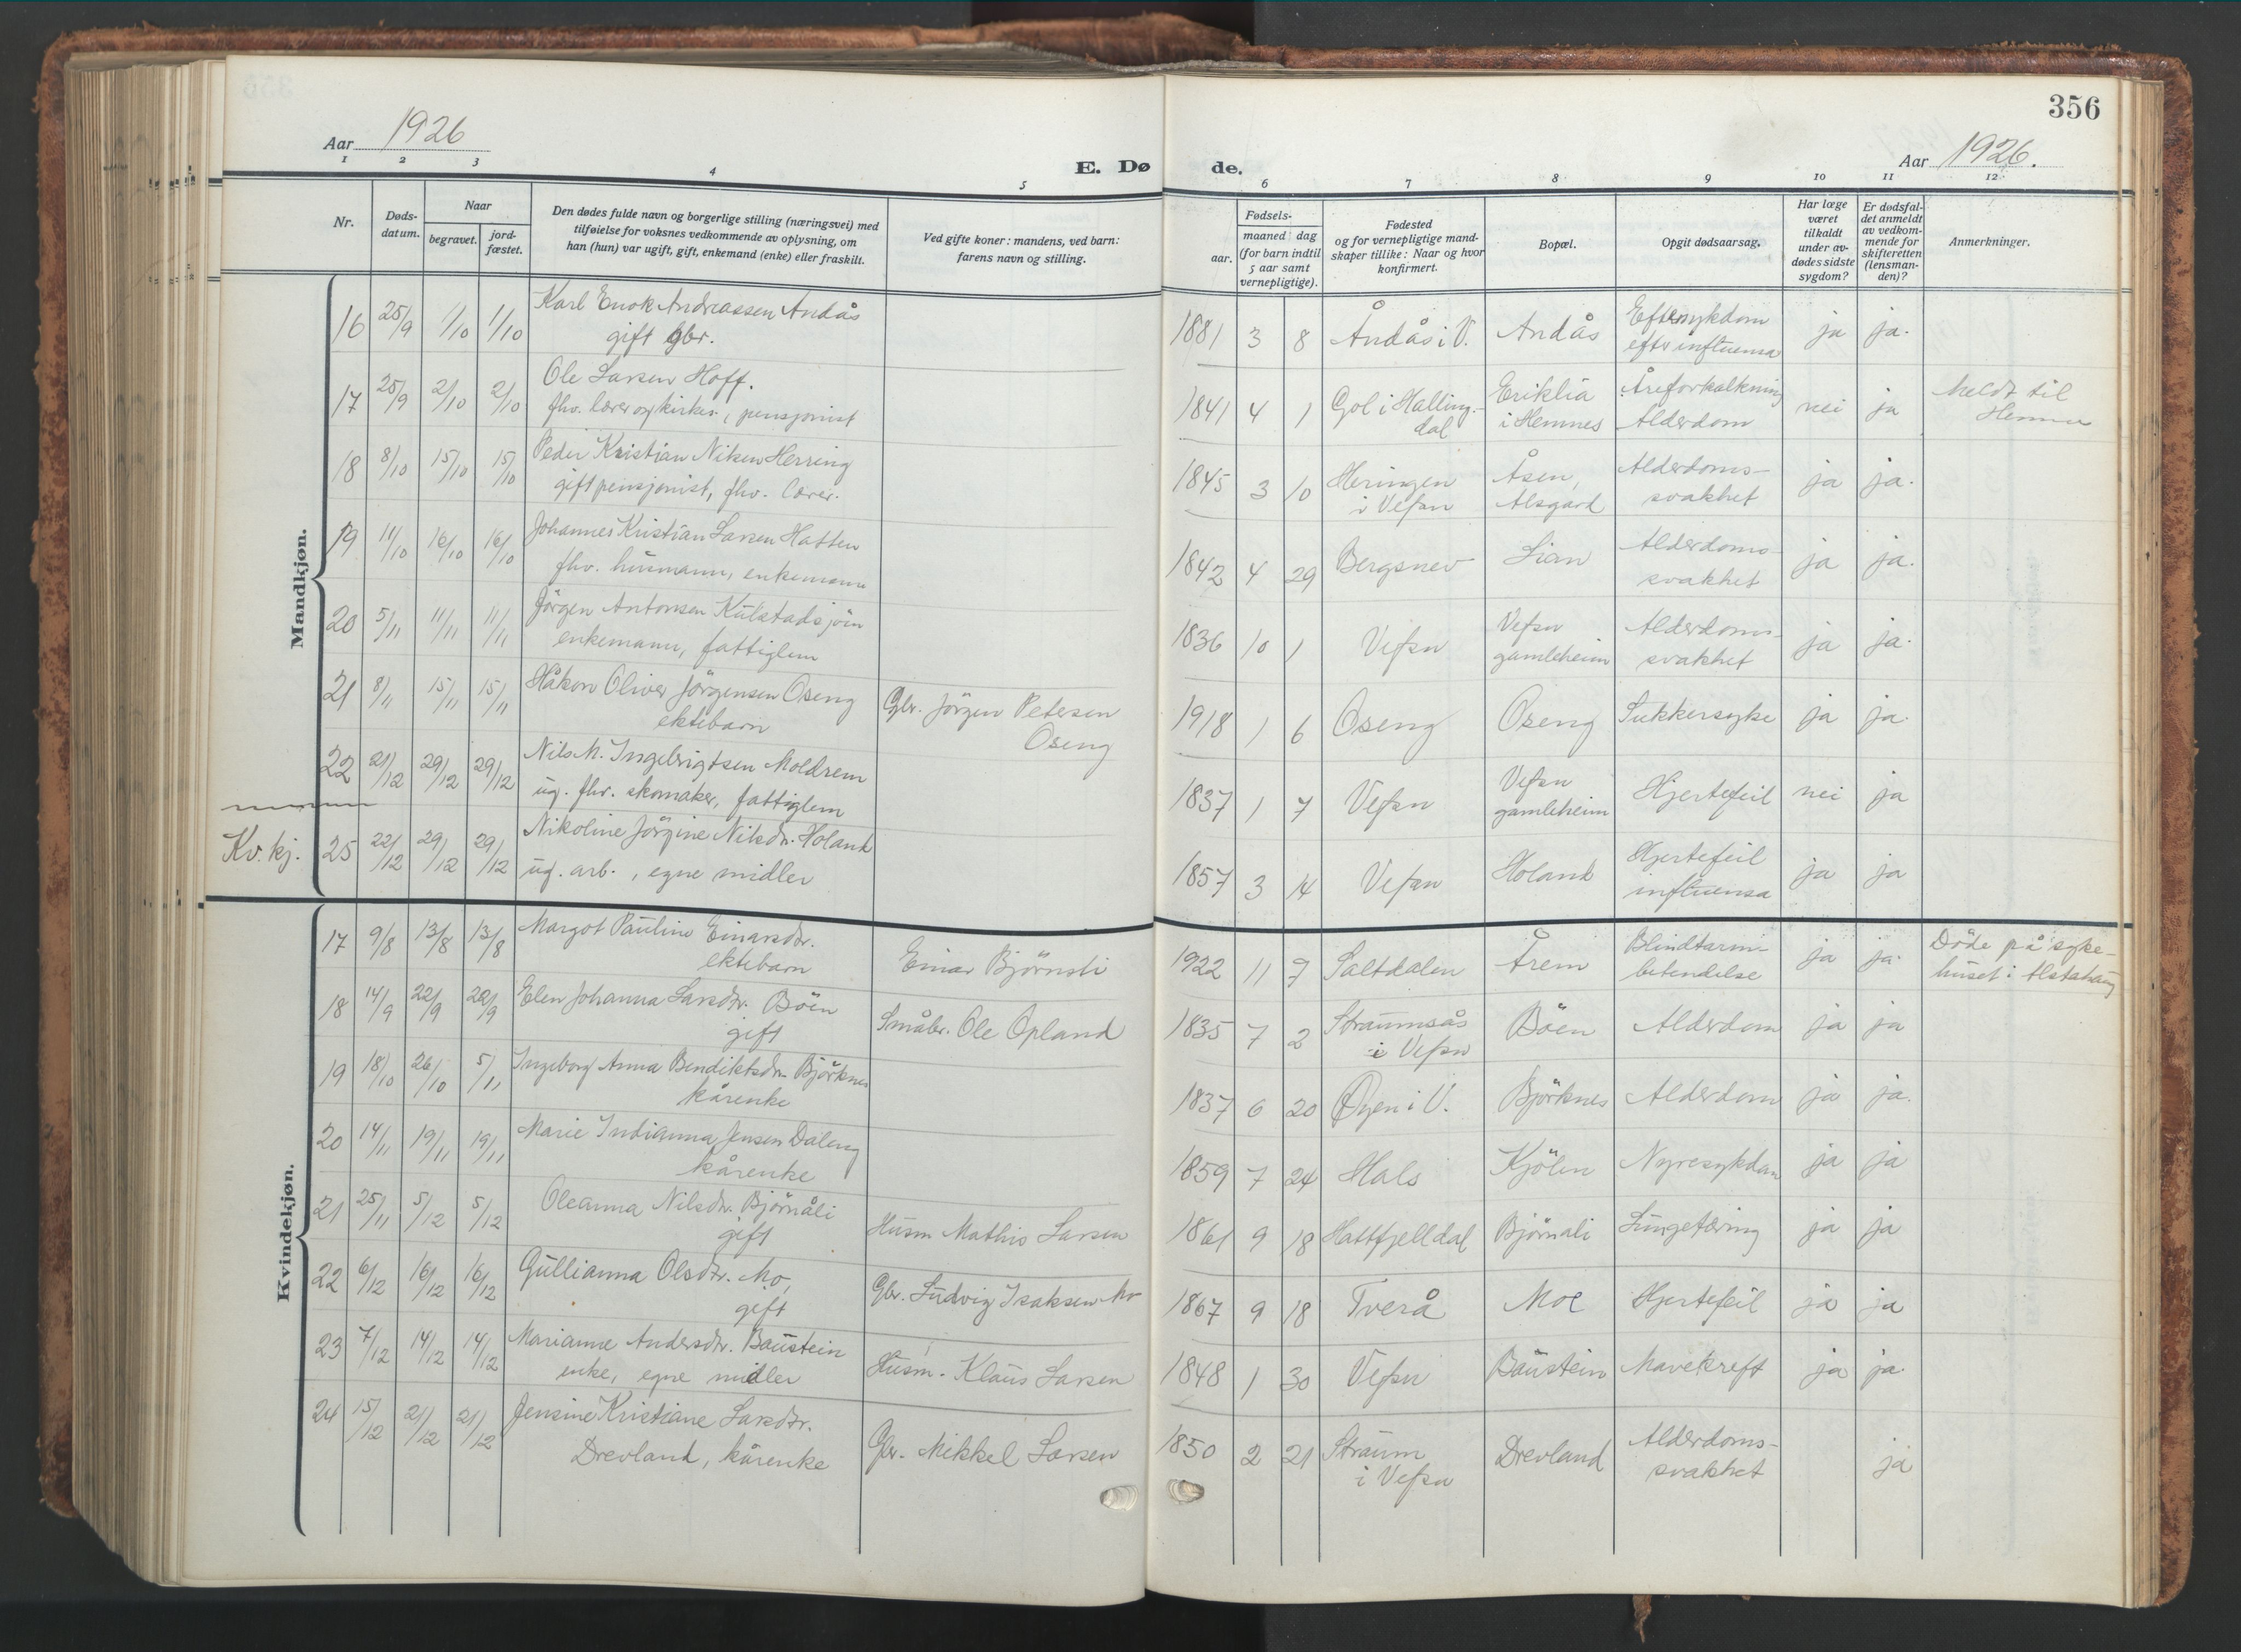 356
Aar 1926
E. Dø
de.
Aar 1926.
1 2 3 4 5 6 7 8 9 10 11 12
Nr.
Døds-
datum.
Naar
begravet.
jord-
fæstet.
Den dødes fulde navn og borgerlige stilling (næringsvei) med
tilføielse for voksnes vedkommende av oplysning, om
han (hun) var ugift, gift, enkemand (enke) eller fraskilt.
Ved gifte koner: mandens, ved barn:
farens navn og stilling.
Fødsels-
aar.
maaned dag
(for barn indtil
5 aar samt
vernepligtige).
Fødested
og for vernepligtige mand-
skaper tillike: Naar og hvor
konfirmert.
Bopæl.
Opgit dødsaarsag.
Har læge
været
tilkaldt
under av-
dødes sidste
sygdom?
Er dødsfal-
det anmeldt
av vedkom-
mende for
skifteretten
(lensman-
den)?
Anmerkninger.
Mandkjøn.
16 25/9 1/10 1/10 Karl Enok Andreassen Andås
gift gbr.
1881 3 8 Åndås i V. Andås Eftersykdom
efter influensa ja ja.
17 25/9 2/10 2/10 Ole Larsen Hoff.
fhv. lærer og kirkes., pensjonist
1841 4 1 Gol i Halling-
dal
Eriklia
i Hemnes
Åreforkalkning
Alderdom
nei ja
Meldt til
18 8/10 15/10 15/10 Peder Kristian Nilsen Herring
gift pensjonist, fhv. lærer.
1845 3 10 Heringen
i Vefsn
Åsen,
Alsgard
Alderdoms-
svakhet
ja ja.
19 11/10 16/10 16/10 Johannes Kristian Larsen Hatten
fhv. husmann, enkemann
1842 4 29 Bergsnev Lian Alderdoms-
svakhet
ja ja.
20 5/11 11/11 11/11 Jörgen Antonsen Kulstadsjöen
enkemann, fattiglem
1836 10 1 Vefsn Vefsn
gamleheim
Alderdoms-
svakhet
ja ja.
21 8/11 15/11 15/11 Håkon Oliver Jörgensen Oseng
ektebarn
Gbr. Jörgen Petersen
Oseng
1918 1 6 Oseng Oseng Sukkersyke ja ja.
22 21/12 29/12 29/12 Nils M. Ingebrigtsen Moldrem
ug. fhv. skomaker, fattiglem
1837 1 7 Vefsn Vefsn
gamleheim
Hjertefeil nei ja
Kv. kj. 25 22/12 29/12 29/12 Nikoline Jörgine Nilsdr. Holand
ug. arb., egne midler
1857 3 14 Vefsn Holand Hjertefeil
influensa
ja ja
Kvindekjøn.
17 9/8 13/8 13/8 Margot Pauline Einarsdr.
ektebarn
Einar Björnsti
1922 11 9 Saltdalen Årem Blindtarm-
betendelse
ja ja.
Döde på syke-
huset i Alstahaug
18 14/9 22/9 22/9 Elen Johanna Larsdtr. Böen
gift
Småbr. Ole Opland
1835 7 2 Straumsås
i Vefsn
Böen Alderdom ja ja
19 18/10 26/10 5/11 Ingeborg Anna Bendiktsdr. Björknes
kårenke
1837 6 20 Öyen i V. Björknes Alderdom ja ja.
20 14/11 19/11 19/11 Marie Indianna Jensen Daleng
kårenke
1859 7 24 Hals Kjölen Nyresykdom ja ja
21 25/11 5/12 5/12 Oleanna Nilsdtr. Björnåli
gift
Husm Mathis Larsen
1861 9 18 Hattfjelldal Björnåli Lungetæring ja ja
22 6/12 16/12 16/12 Gullianna Olsdtr. Mo,
gift
Gbr. Ludvig Isaksen Mo
1867 9 18 Tverå Moe Hjertefeil ja ja
23 7/12 14/12 14/12 Marianna Andersdtr. Baustein
enke, egne midler
Husm. Klaus Larsen
1848 1 30 Vefsn Baustein Mavekreft ja ja.
24 15/12 21/12 21/12 Jensine Kristiane Larsdtr.
Drevland, kårenke
Gbr. Mikkel Larsen
1850 2 21 Straum
i Vefsn
Drevland Alderdoms-
svakhet
ja